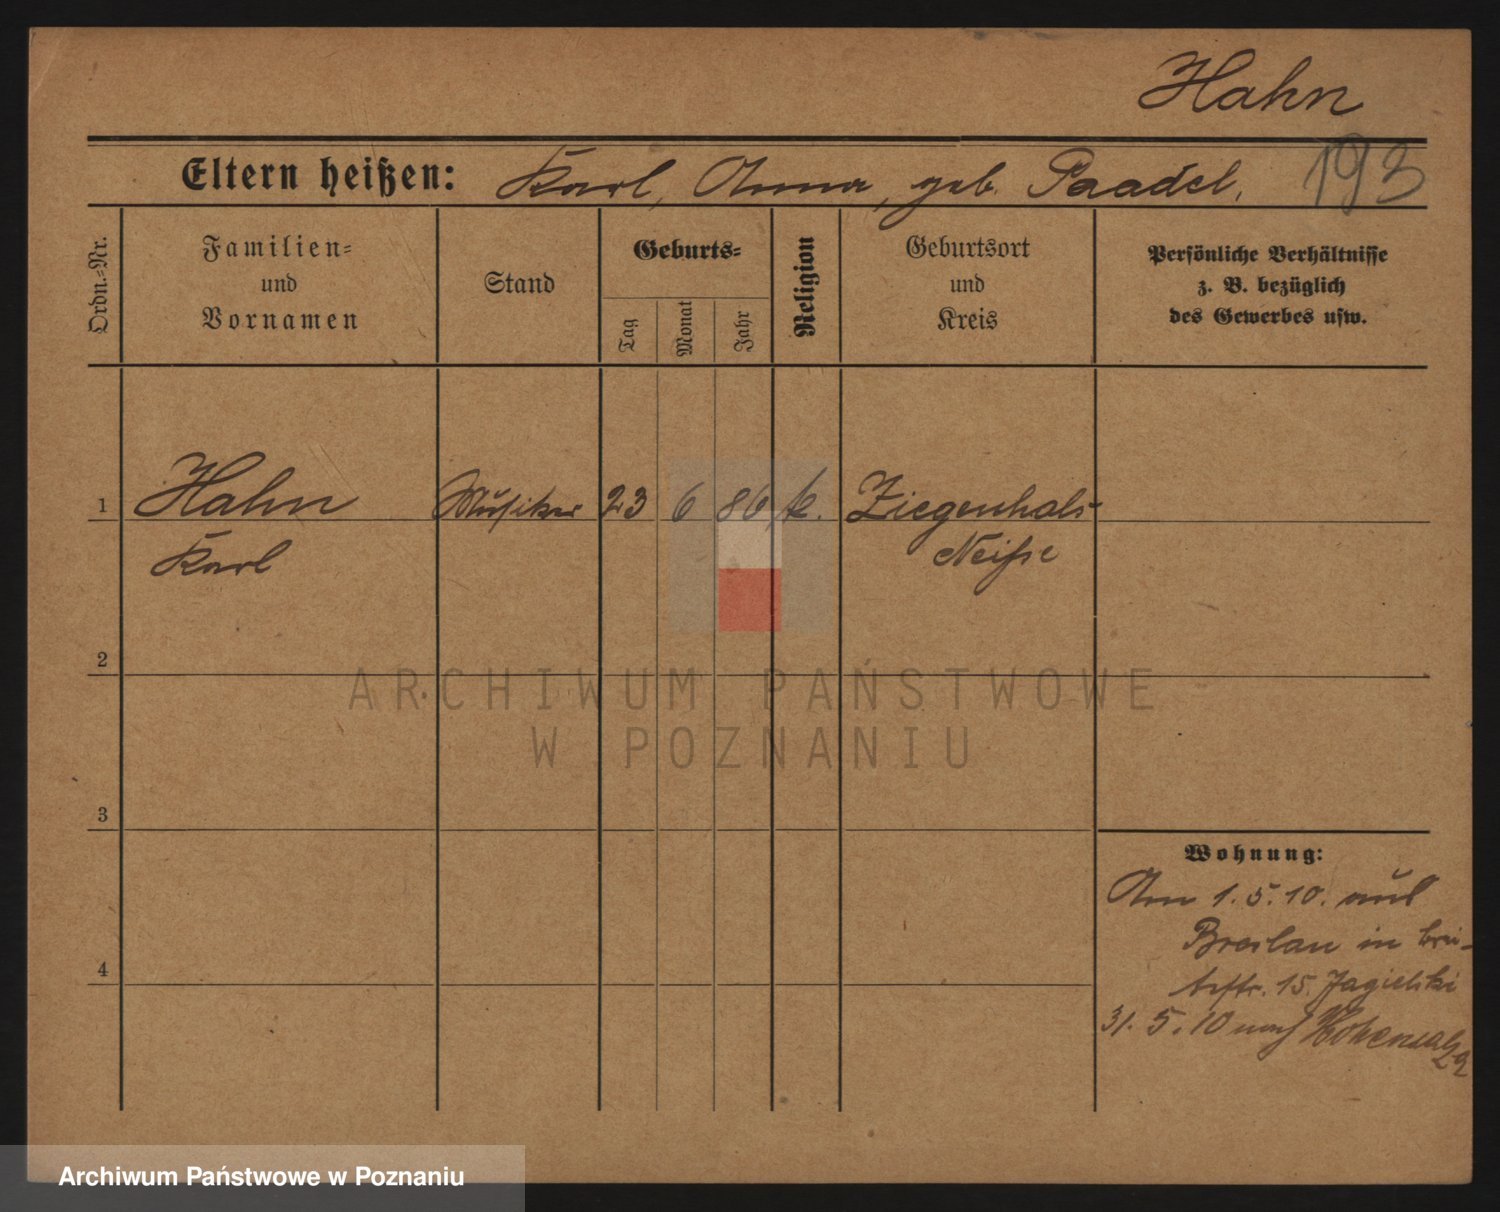 Hahn
Eltern heißen: Karl, Anna, geb. Paadel.
193
Ordn.=Nr.
Familien=
und
Vornamen
Stand
Geburts=
Tag
Monat
Jahr
Religion
Geburtsort
und
Kreis
Persönliche Verhältnisse
z. B. bezüglich
des Gewerbes usw.
1 Hahn Musiker 23 6 86 k. Ziegenhals
Karl Neisse
2
3
4
Wohnung:
Am 1.5.10. aus
Breslau in
15. Jagielski
31.5.10 nach Hohensalza
ARCHIWUM PAŃSTWOWE
W POZNANIU
Archiwum Państwowe w Poznaniu